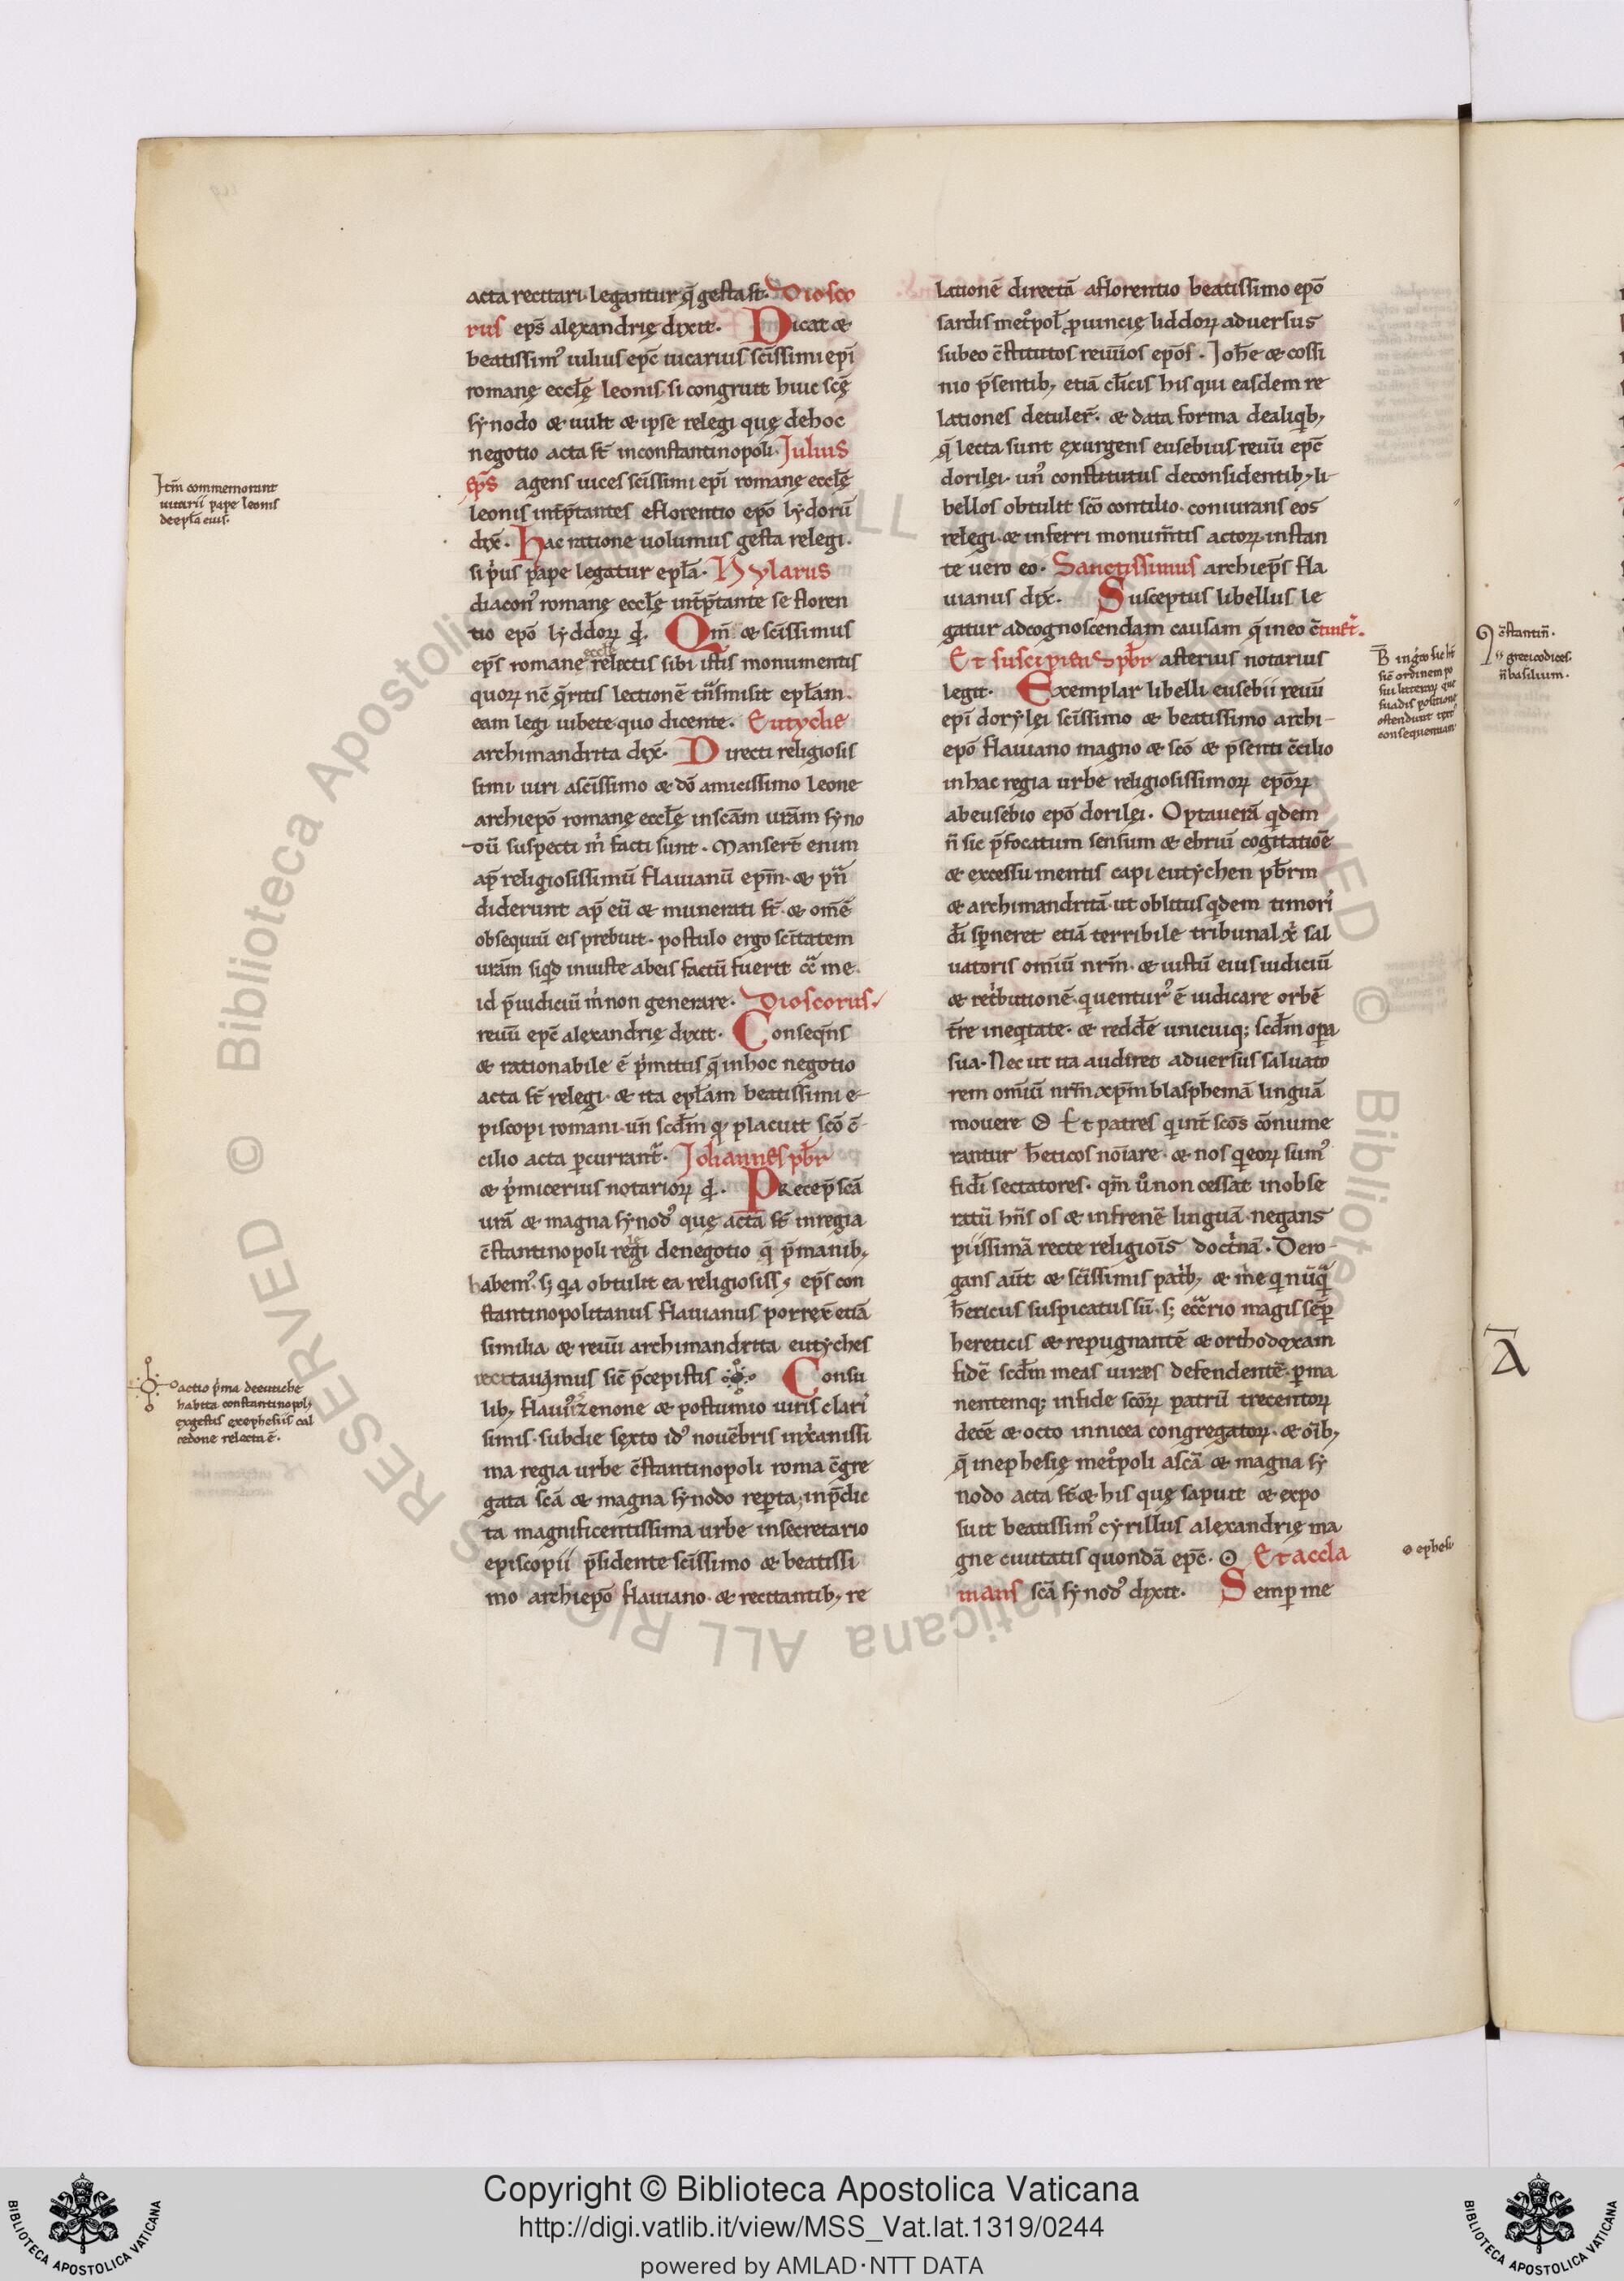 acta recitari. legantur q̄ gesta st̄. Diosco
rus ep̄s alęxandrię dixit. Dicat &
beatissim᾽ iulius ep̄c uicarius sc̄issimi ep̄i
romanę eccl̄ę leonis. si congruit huic sc̄ę
sẏnodo & uult & ipse relegi quę dehoc
negotio acta st̄ inconstantinopoli. Julius
ep̄s agens uices sc̄issimi ep̄i romanę eccl̄ę
leonis int̄p̄tantes eflorentio ep̄o lẏdorū
dix̄. Hac ratione uolumus gesta relegi.
si p'us pape legatur epl̄a. Hylarus
diacon᾽ romanę eccl̄ę int̄p̄tante se floren
tio ep̄o lẏddoꝝ d̄. Qm̄ & sc̄issimus
ep̄s romane eccl̄ę relectis sibi istis monumentis
quoꝝ nc̄ q̄ritis lectionē tn̄smisit epl̄am.
eam legi iubete quo dicente. Eutyche
archimandrita dix̄. Directi religiosis
simi uiri asc̄issimo & dō amicissimo leone
archiep̄o romanę eccl̄ę insc̄am ur̄am sẏno
dū suspecti m' facti sunt. Manser̄t enim
ap̄ religiosissimū flauianū ep̄m. & pn̄
diderunt ap̄ eū & munerati st̄. & om̄e
obsequiū eis prebuit. postulo ergo sc̄itatem
ur̄am siqd iniuste abeis factū fuerit cc̄ me.
id p̄iudiciū m' non generare. Dioscorus.
reuū ep̄c alęxandrię dyxit. Conseqn̄s
& rationabile ē p'mitus q̄ inhoc negotio
acta st̄ relegi. & ita epl̄am beatissimi e-
piscopi romani. un̄ scd̄m q placuit sc̄o c̄-
cilio acta ꝑcurrant̄. Johannes pb̄r
& p'micerius notarioꝝ d̄. Precep̄ sc̄a
ur̄a & magna sẏnod᾽ quę acta st̄ inregia
c̄stantinopoli regi denegotio q̄ p̄manib;
habem᾽. s; qa obtulit ea religiosiss; ep̄s con
stantinopolitanus flauianus porrex̄ etiā
similia & reuū archimandrita eutyches
recitauimus sic̄ p̄cepistis Consu
lib; flauio zenone & postumio uiris clari
simis. subdie sęxto id᾽ nouēbris inx̄anissi
ma regia urbe c̄stantinopoli roma c̄gre
gata sc̄a & magna sẏnodo rep̄ta; inp̄dic
ta magnificentissima urbe insecretario
episcopii p̄sidente sc̄issimo & beatissi
mo archiep̄o flauiano. & recitantib; re
lationē directā aflorentio beatissimo ep̄o
sardis met᾽pol̄ puincię liddoꝝ aduersus
subeo c̄stitutos reuūos ep̄os. Joh̄e & cossi
nio p̄sentib; etiā cl̄icis his qui easdem re
lationes detuler̄. & data forma dealiqb;
q̄ lecta sunt ęxurgens eusebius reuū ep̄c
dorilęi. un᾽ constitutus deconsidentib; li
bellos obtulit sc̄o contilio. coniurans eos
relegi. & inferri monum̄tis actoꝝ. instan
te uero eo. Sanctissimus archiep̄s fla
uianus dix̄. Susceptus libellus le
gatur adcognoscendam causam q̄ ineo c̄tinet̄.
Et suscipiens pb̄r asterius notarius
legit. Exemplar libelli eusebii reuū
ep̄i dorẏlęi sc̄issimo & beatissimo archi-
ep̄o flauiano magno & sc̄o & p̄senti c̄cilio
inhac regia urbe religiosissimoꝝ ep̄oꝝ
abeusebio ep̄o dorilęi. Optauerā qdem
n̄ sic p̄focatum sensum & ebrui cogitatioē
& excessu mentis capi eutẏchen pb̄rm
& archimandritā. ut oblitus qdem timori
d̄i sꝑneret etiā terribile tribunal x̄i sal
uatoris om̄iū nr̄m. & iustū eius iudiciū
& ret'butionē. q uentur᾽ ē iudicare orbē
t̄re ineqitate. & redde unicuiq; scd̄m opa
sua. Nec ut ita audiret aduersus saluato
rem om̄iū nr̄m xp̄m blasphemā linguā
mouere Et patres q int̄ sc̄os c̄nume
rantur h̄eticos noīare. & nos q eoꝝ sum᾽
fidī sectatores. qm̄ u᾽ non cessat inobse
ratū hn̄s os & infrenē linguā. negans
piissimā recte religiois doct'nā. Dero-
gans aūt & sc̄issimis pat'b; & me q nūqā
h̄ericus suspicatus sū. s; ecc̄rio magis sēꝑ
hereticis & repugnantē & orthodoxam
fidē scd̄m meas uires defendentē. ꝑma
nentemq; infide sc̄oꝝ patrū trecentoꝝ
decē & octo innicea congregatoꝝ. & oīb;
q̄ inephesię met᾽poli ascā & magna sẏ
nodo acta st̄ & his quę sapuit & expo
suit beatissim᾽ cẏrillus alęxandrię ma
gne ciuitatis quondā ep̄c. Et accla
mans sc̄a sẏnod᾽ dyxit. Semꝑ me
Itm̄ commemorant
uicarii pape leonis
deepl̄a eius.
actio p'ma deeutiche
habita constantinopol;
exgestis exephesiis cal
cedone relecta ē.
sic̄ ordinem po
sui litteraꝝ que
suadis positione
ostendunt
consequentiam
ephesi
c̄stantin̄.
greci codices
n̄ basilium.
A
Copyright © Biblioteca Apostolica Vaticana
http://digi.vatlib.it/view/MSS_Vat.lat.1319/0244
powered by AMLAD·NTT DATA
BIBLIOTECA APOSTOLICA VATICANA
BIBLIOTECA APOSTOLICA VATICANA
© Biblioteca Apostolica Vaticana ALL RIGHTS RESERVED